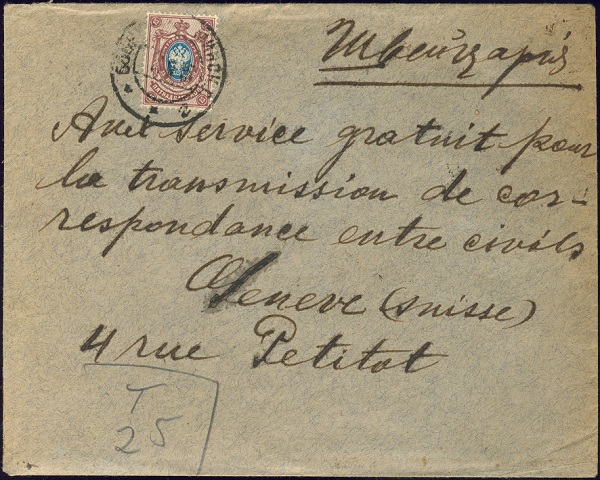 Швейцарія
Aux service gratuit pour
la transmission de cor-
respondance entre civils
Geneve (suisse)
4 rue Petitot
T
25